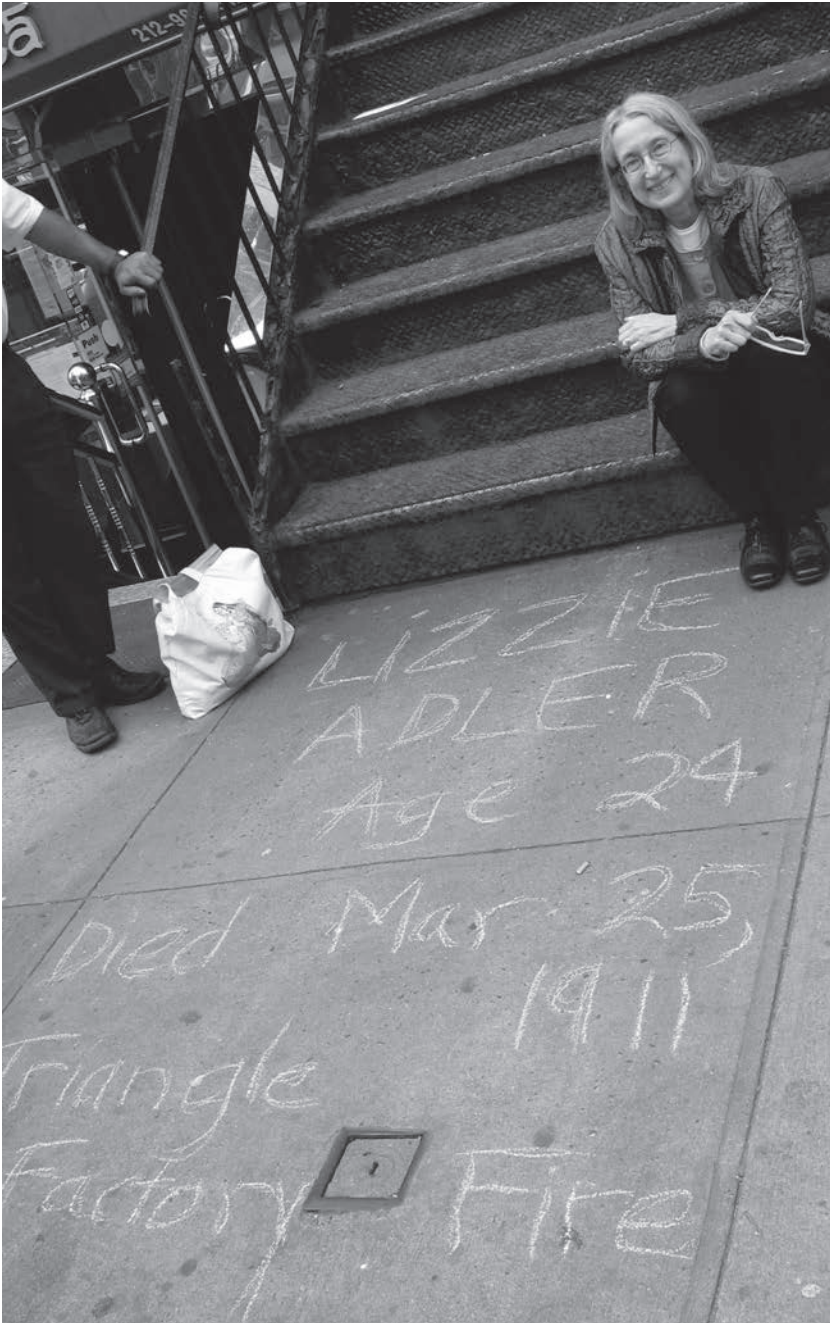 212-9
Push
LIZZIE
ADLER
Age 24
Died Mar 25,
1911
Triangle
Factory Fire